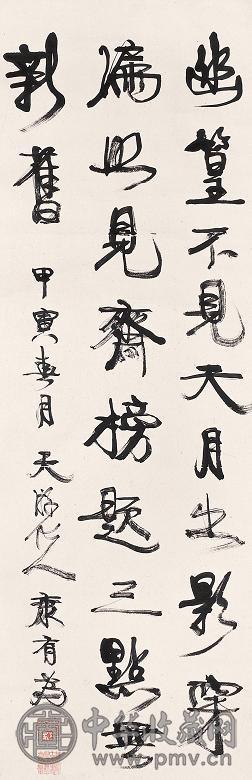 幽篁不見天月出影穿
漏照見齋榜題三點無
新舊 甲寅春月 天游化人 康有為
中華收藏网
www.pmv.cn